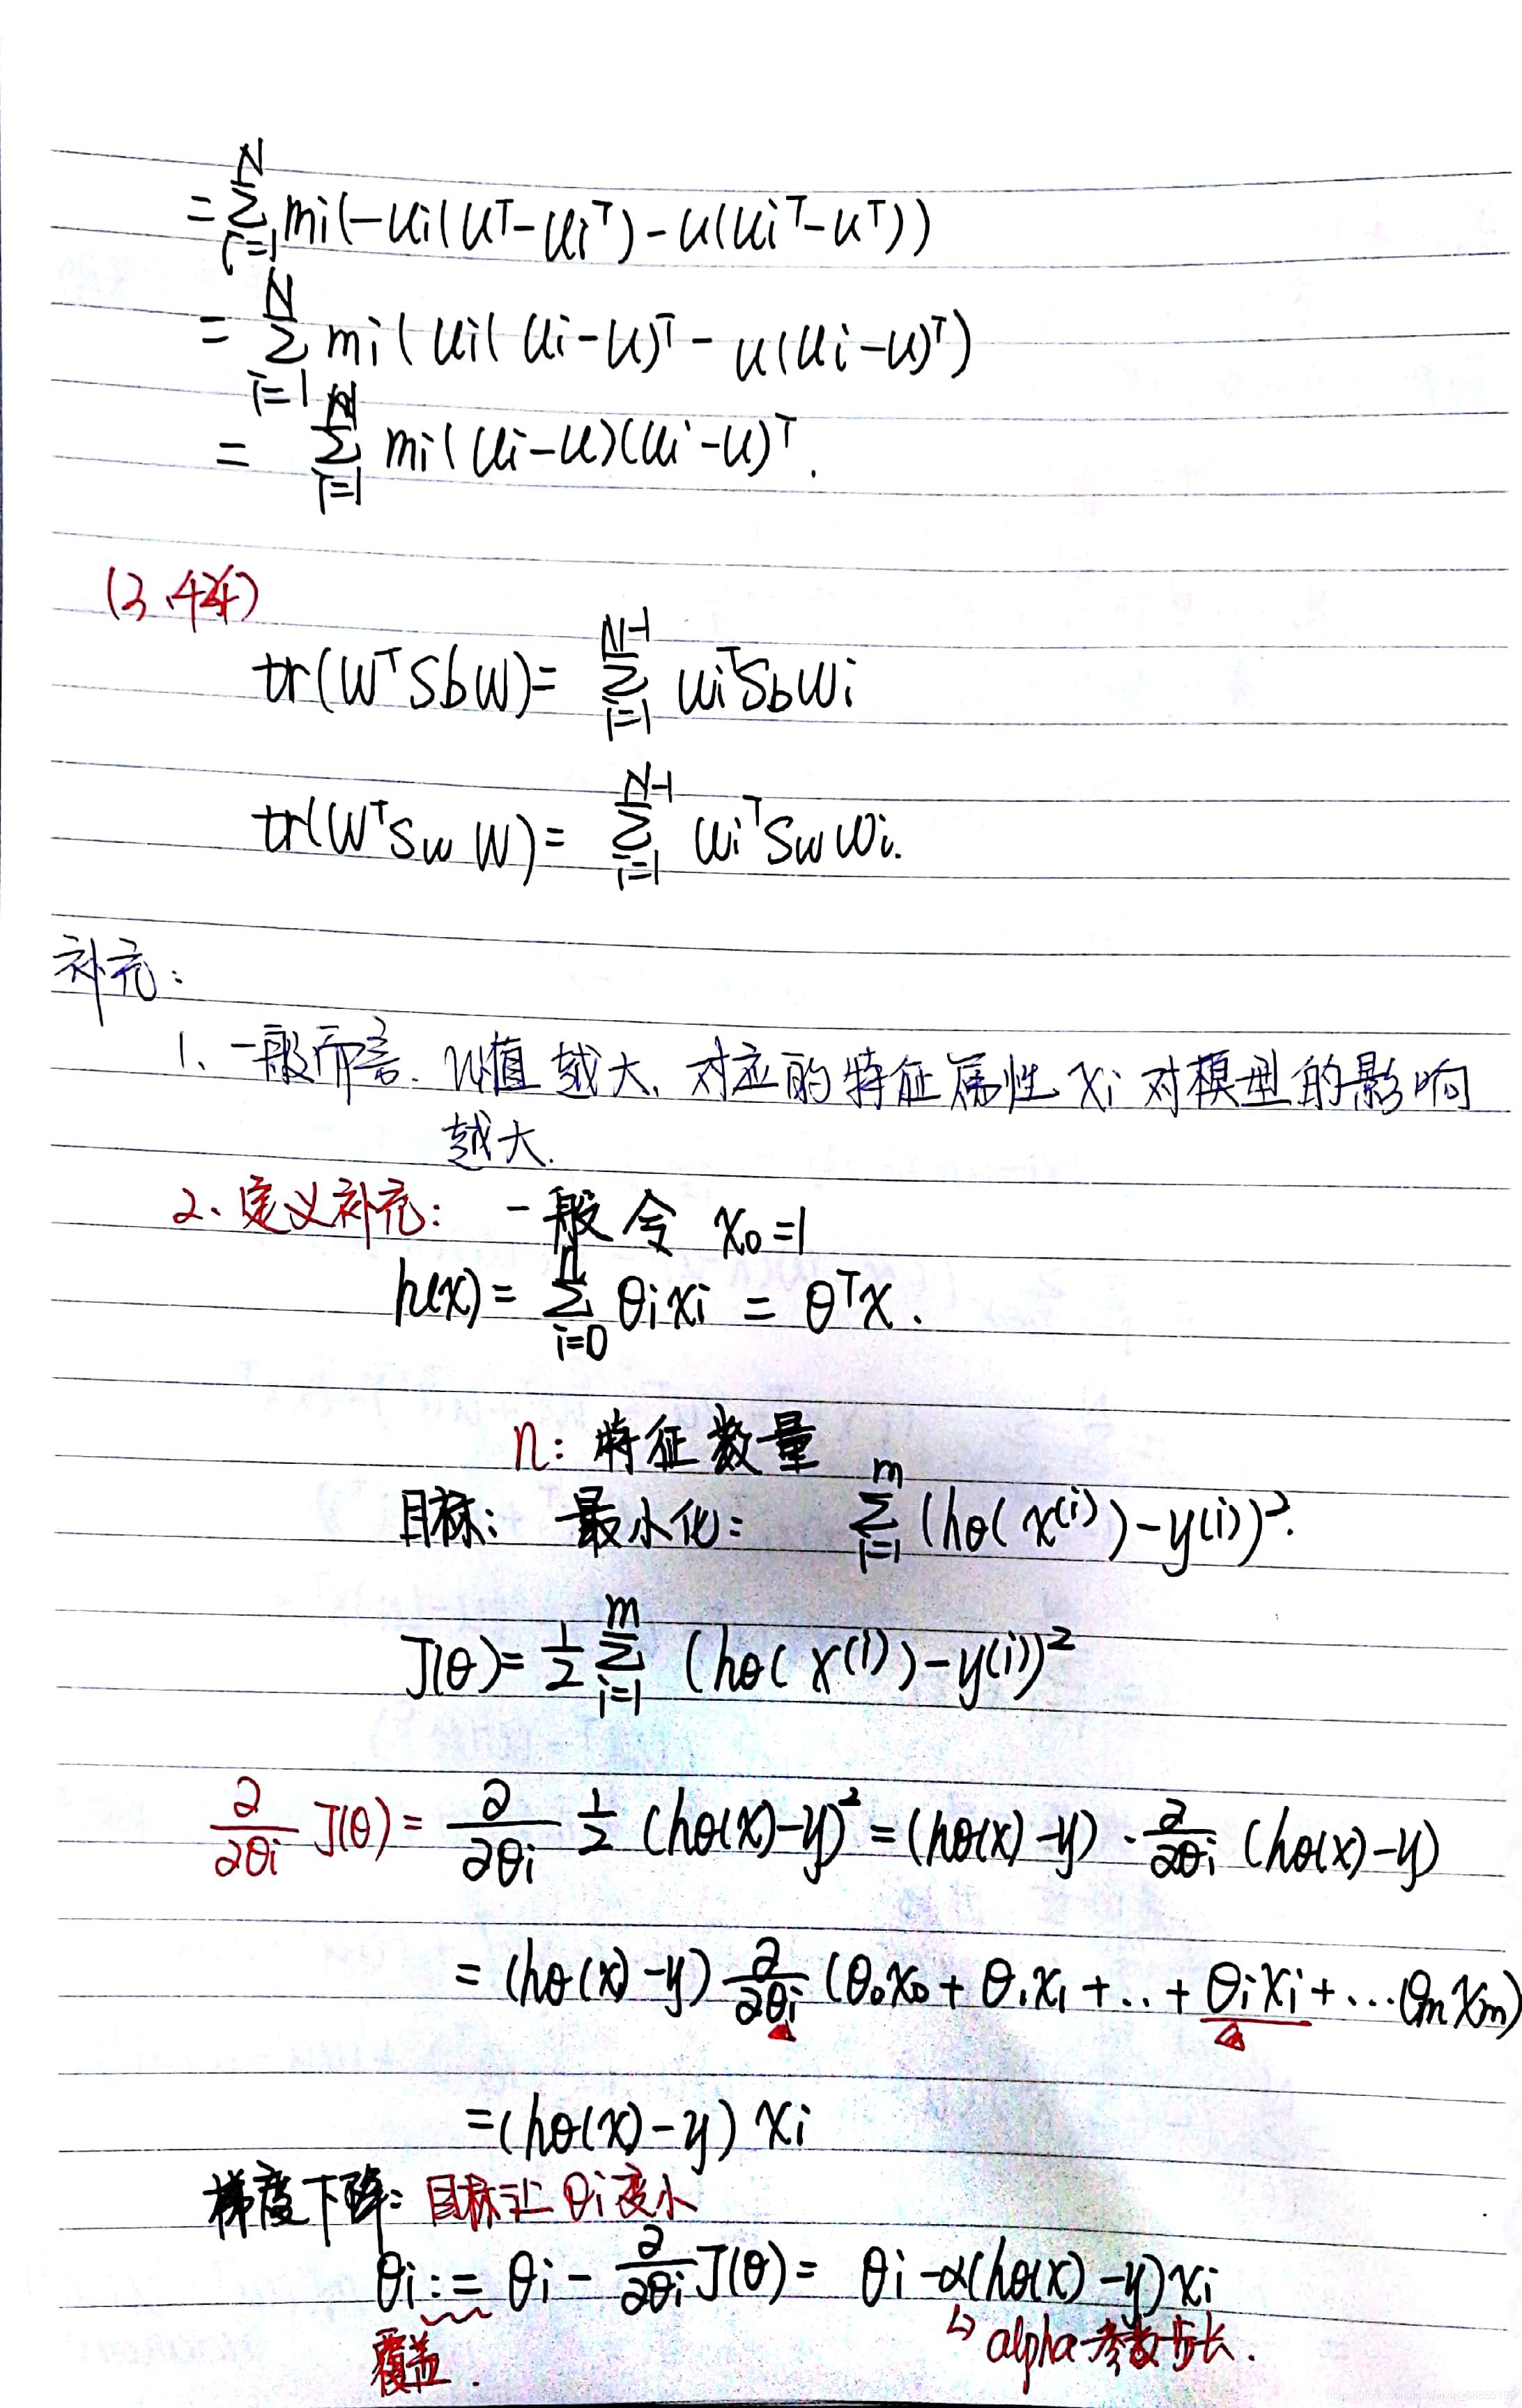 = ∑_{i=1}^{N} mi(-ui(uᵀ-uiᵀ)-u(uiᵀ-uᵀ))
= ∑_{i=1}^{N} mi(ui(ui-u)ᵀ-u(ui-u)ᵀ)
= ∑_{i=1}^{N} mi(ui-u)(ui-u)ᵀ.
(3.44)
tr(WᵀSbW)= ∑_{i=1}^{N-1} wiᵀSbwi
tr(WᵀSwW)= ∑_{i=1}^{N-1} wiᵀSwwi.
补充:
1、一般而言. w值越大、对应的特征属性xi对模型的影响
越大.
2、定义补充: 一般令 x₀=1
h(x)= ∑_{i=0}^{n} θixi = θᵀx.
n: 特征数量
目标: 最小化: ∑_{i=1}^{m} (hθ(x⁽ⁱ⁾)-y(i))².
J(θ)= 1/2 ∑_{i=1}^{m} (hθ(x⁽ⁱ⁾)-y(i))²
∂/∂θi J(θ)= ∂/∂θi 1/2 (hθ(x)-y)² = (hθ(x)-y)·∂/∂θi (hθ(x)-y)
= (hθ(x)-y) ∂/∂θi (θ₀x₀+θ₁x₁+..+θixi+...θmxm)
=(hθ(x)-y) xi
梯度下降: 目标让θi变小
θi := θi - ∂/∂θi J(θ) = θi-α(hθ(x)-y)xi
覆盖. ↳ alpha 参数步长.